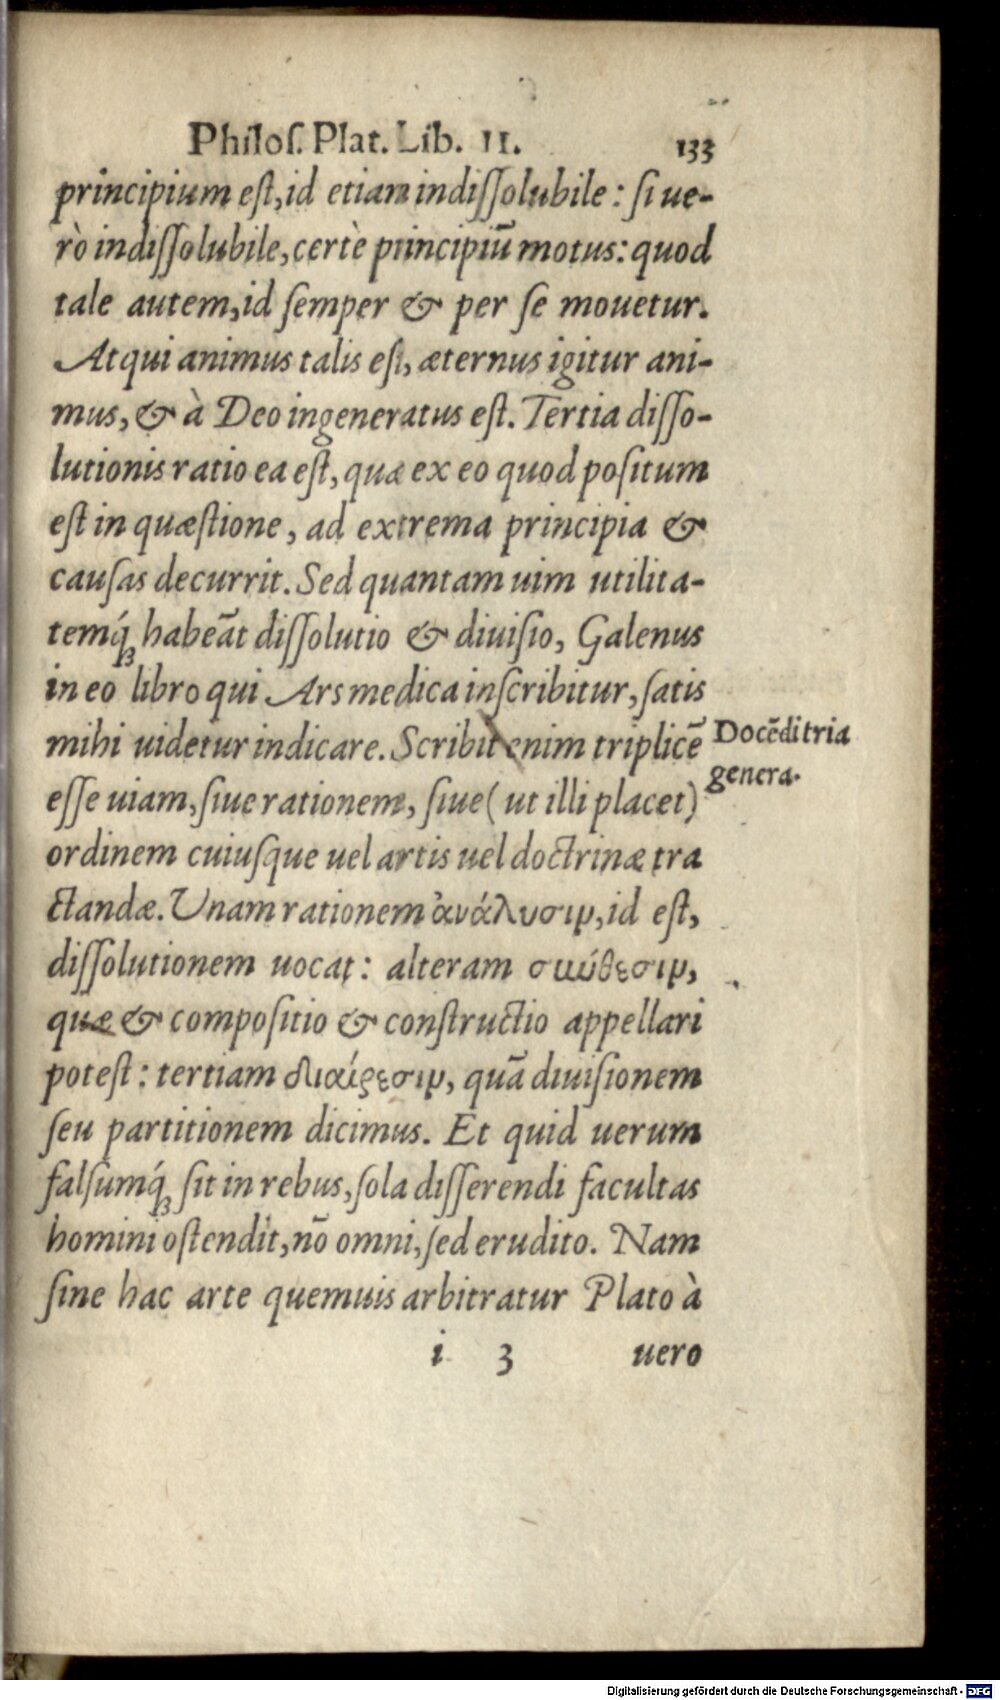 Philoſ. Plat. Lib. II. 133
principium eſt, id etiam indiſſolubile: ſi ue-
rò indiſſolubile, certè principiũ motus: quod
tale autem, id ſemper & per ſe mouetur.
Atqui animus talis eſt, æternus igitur ani-
mus, & à Deo ingeneratus eſt. Tertia diſſo-
lutionis ratio ea eſt, quæ ex eo quod poſitum
eſt in quæſtione, ad extrema principia &
cauſas decurrit. Sed quantam uim utilita-
temq́; habeãt diſſolutio & diuiſio, Galenus
in eo libro qui Ars medica inſcribitur, ſatis
mihi uidetur indicare. Scribit enim triplicẽ
Docẽdi tria
genera.
eſſe uiam, ſiue rationem, ſiue (ut illi placet)
ordinem cuiuſque uel artis uel doctrinæ tra
ctandæ. Unam rationem ἀνάλυσιν, id eſt,
diſſolutionem uocat: alteram σύνθεσιν,
quæ & compoſitio & conſtructio appellari
poteſt: tertiam διαίρεσιν, quã diuiſionem
ſeu partitionem dicimus. Et quid uerum
falſumq́; ſit in rebus, ſola diſſerendi facultas
homini oſtendit, nõ omni, ſed erudito. Nam
ſine hac arte quemuis arbitratur Plato à
i 3 uero
Digitalisierung gefördert durch die Deutsche Forschungsgemeinschaft - DFG